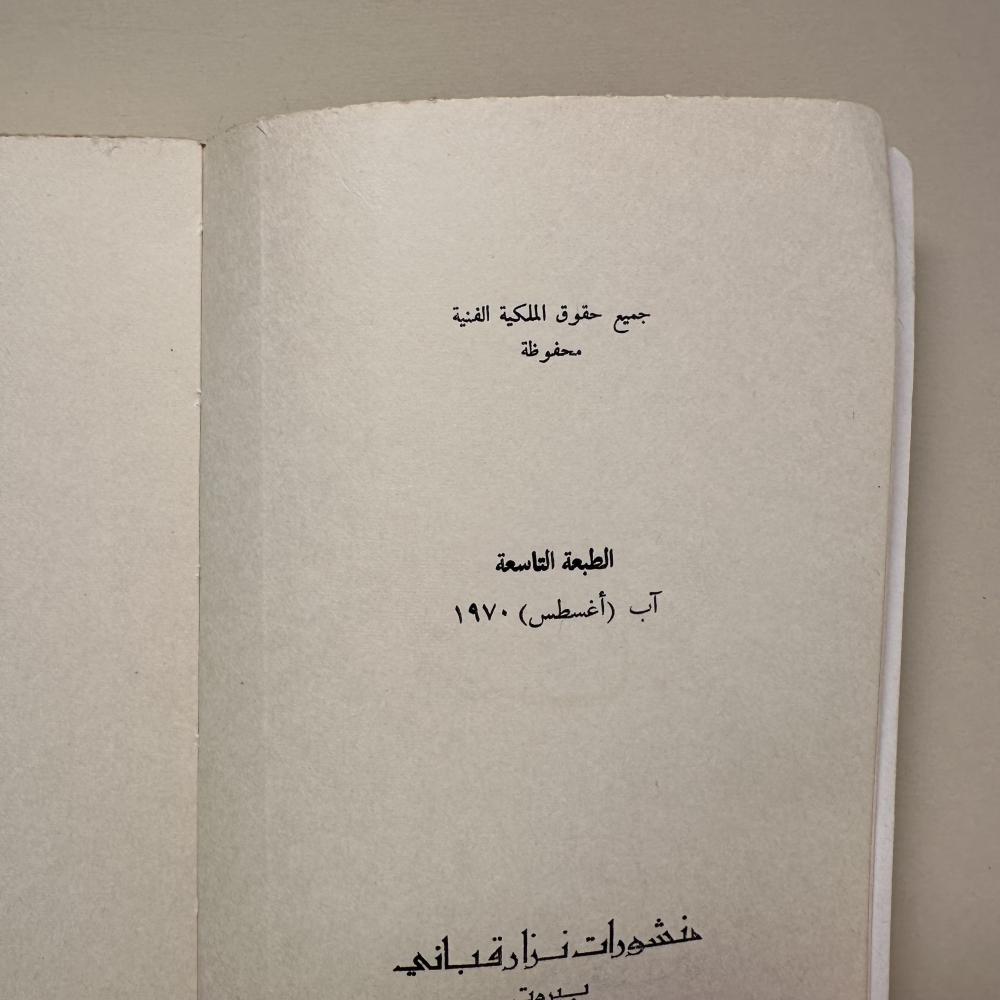 جميع حقوق الملكية الفنية
محفوظة
الطبعة التاسعة
آب (أغسطس) ١٩٧٠
منشورات نزار قباني
بيروت